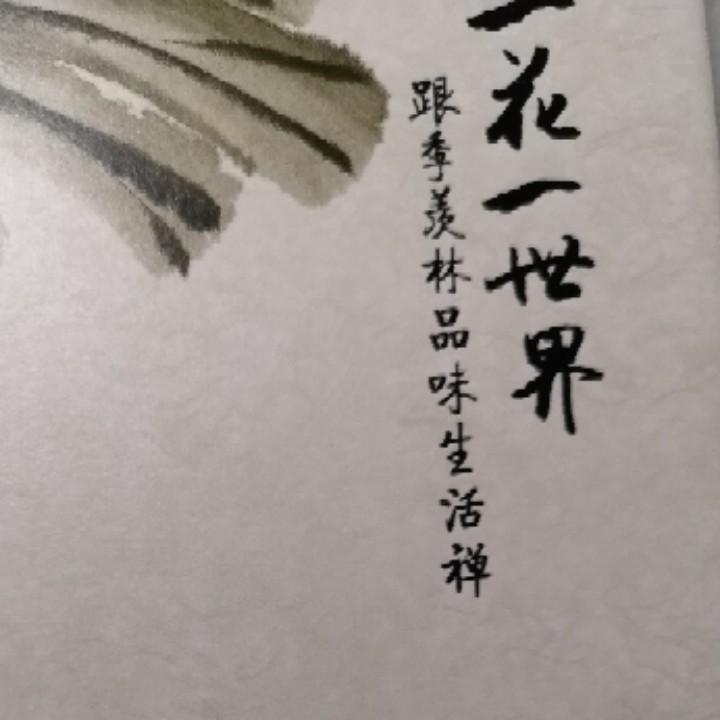 一花一世界
跟季羡林品味生活禅